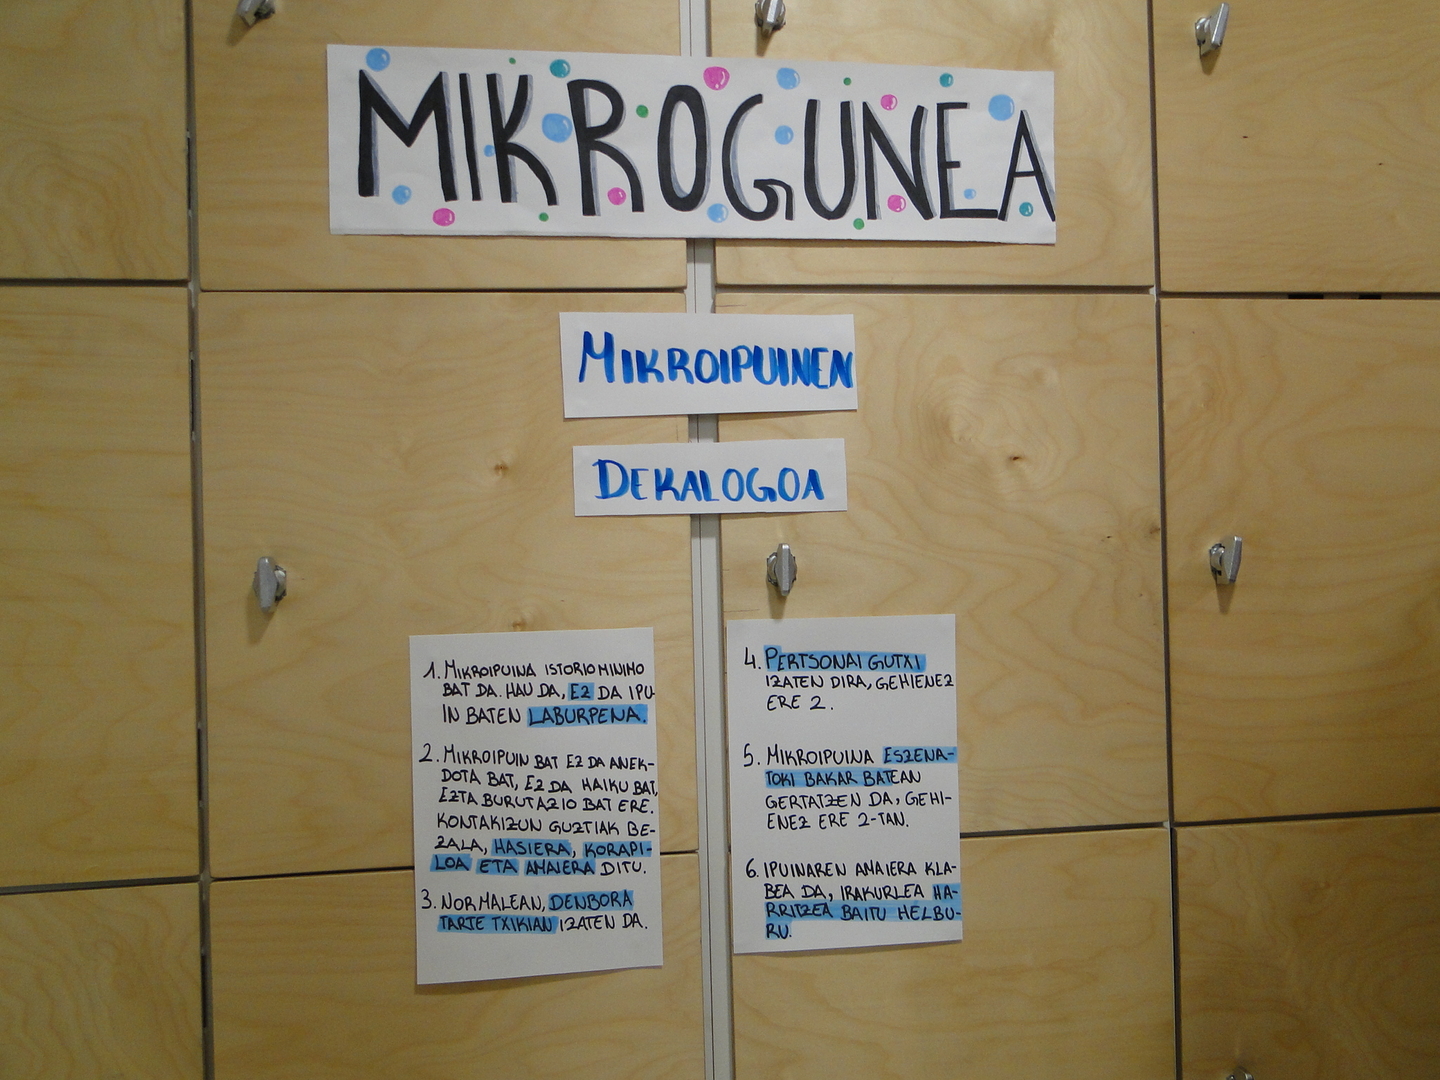 MIKROGUNEA
MIKROIPUINEN
DEKALOGOA
1. MIKROIPUINA ISTORIO MINIMO
BAT DA. HAU DA, EZ DA IPU-
IN BATEN LABURPENA.
2. MIKROIPUIN BAT EZ DA ANEK-
DOTA BAT, EZ DA HAIKU BAT,
EZTA BURUTAZIO BAT ERE.
KONTAKIZUN GUZTIAK BE-
ZALA, HASIERA, KORAPI-
LOA ETA AMAIERA DITU.
3. NORMALEAN, DENBORA
TARTE TXIKIAN IZATEN DA.
4. PERTSONAI GUTXI
IZATEN DIRA, GEHIENEZ
ERE 2.
5. MIKROIPUINA ESZENA-
TOKI BAKAR BATEAN
GERTATZEN DA, GEHI-
ENEZ ERE 2-TAN.
6. IPUINAREN AMAIERA KLA-
BEA DA, IRAKURLEA HA-
RRITZEA BAITU HELBU-
RU.